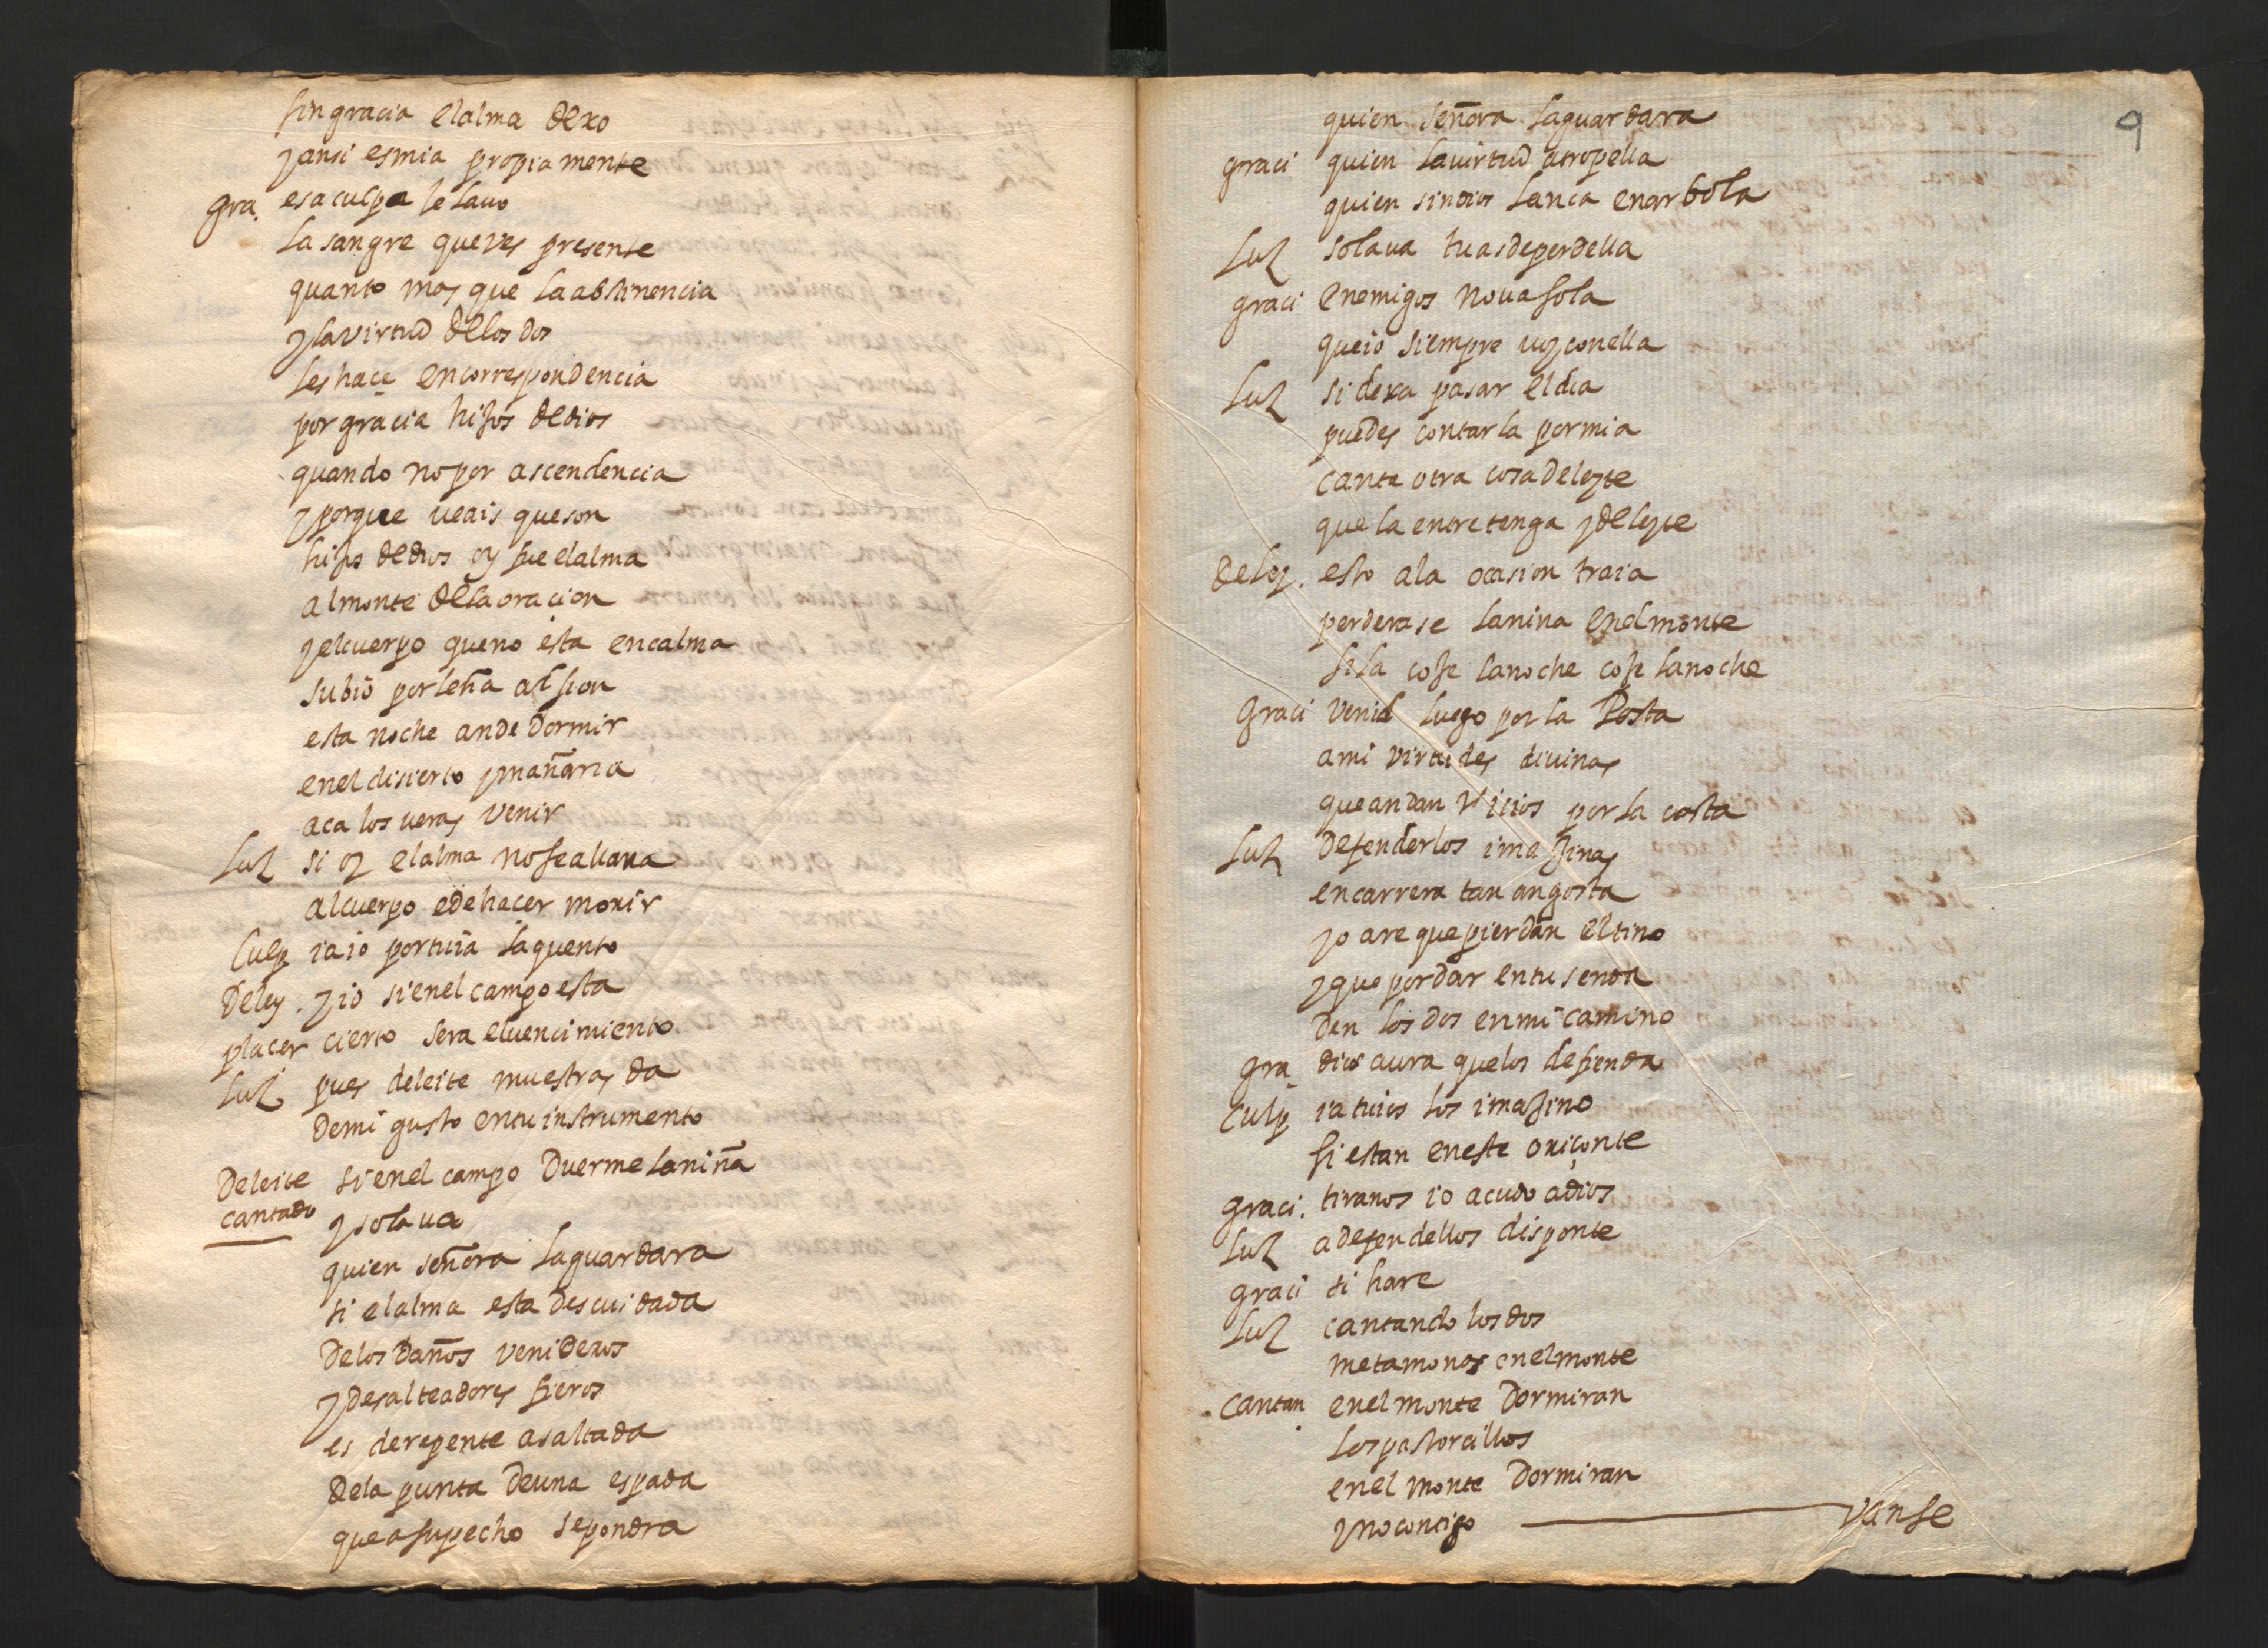 sin gracia el alma dexo
y ansi es mia propia mente
gra. esa culpa le lauo
la sangre que ves presente
quanto mas que la abstinencia
y la virtud de los dos
les hace en correspondencia
por gracia hijos de dios
quando no por ascendencia
y porque ueais que son
hijos de dios oy fue el alma
al monte de la oracion
y el cuerpo que no esta en calma
subio por leña al sion
esta noche an de dormir
en el disierto y mañana
aca los ueras venir
Luz si oy el alma no se allana
al cuerpo e de hacer morir
Culp ia io por tuia la quento
Deley. y io si en el campo esta
placer cierto sera el uencimiento
Luz pues deleite muestras da
de mi gusto en tu instrumento
Deleite si en el campo duerme la niña
cantado y sola ua
quien señora la guardara
si el alma esta descuidada
de los daños venideros
y de salteadores fieros
es de repente asaltada
de la punta de una espada
que a su pecho se pondra
9
quien señora la guardara
graci quien la uirtud atropella
quien sin dios lanca enarbola
Luz sola ua tu as de perdella
graci enemigos no ua sola
que io siempre uoy con ella
Luz si dexa pasar el dia
puedes contarla por mia
canta otra cosa deleyte
que la entretenga y deleyte
Deley. esto a la ocasion traia
perderase la nina en el monte
si la coje la noche coje la noche
Graci venid luego por la Posta
a mi virtudes diuinas
que andan vicios por la costa
Luz defenderlos imajinas
en carrera tan angosta
yo are que pierdan el tino
y que por dar en tu senda
den los dos en mi camino
gra dios aura que los defienda
Culp ia tuios los imajino
si estan en este oriçonte
graci. tiranos io acudo a dios
Luz a defendellos disponte
graci si hare
Luz cantando los dos
metamonos en el monte
cantan en el monte dormiran
los pastorcillos
en el monte dormiran
y no contigo vanse